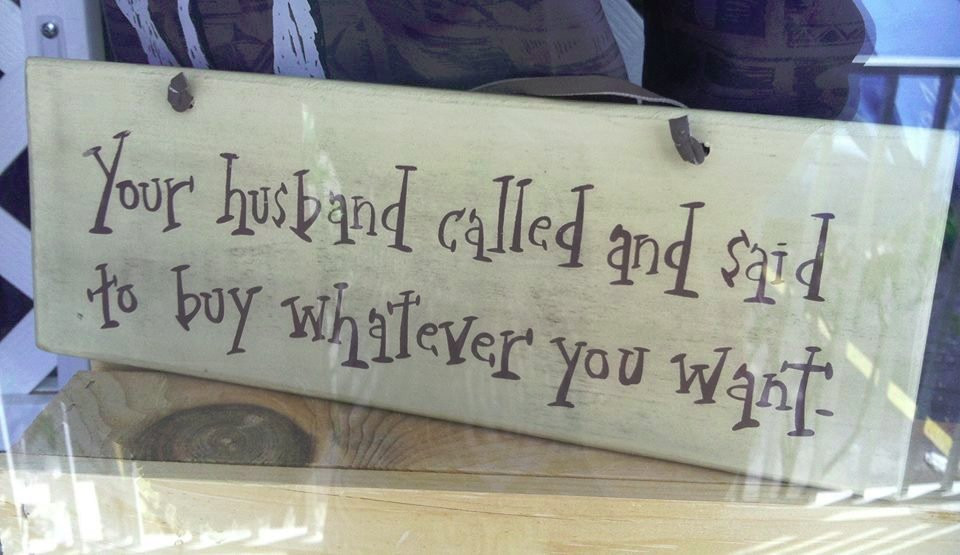 Your husband called and said
to buy whatever you want.